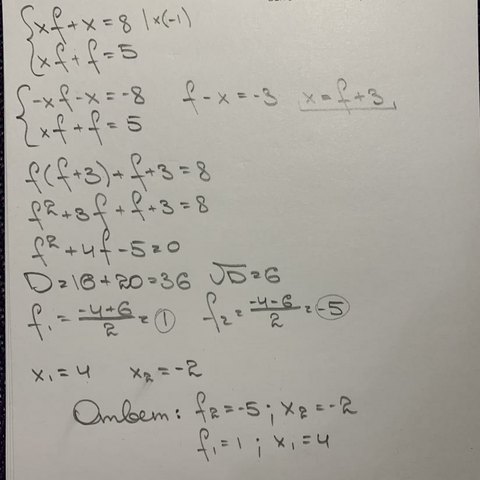 {xf+x=8 |x(-1)
{xf+f=5
{-xf-x=-8 f-x=-3 x=f+3
{xf+f=5
f(f+3)+f+3=8
f²+3f+f+3=8
f²+4f-5=0
D=16+20=36 √D=6
f₁=(-4+6)/2=1 f₂=(-4-6)/2=-5
x₁=4 x₂=-2
Ответ: f₂=-5; x₂=-2
f₁=1; x₁=4